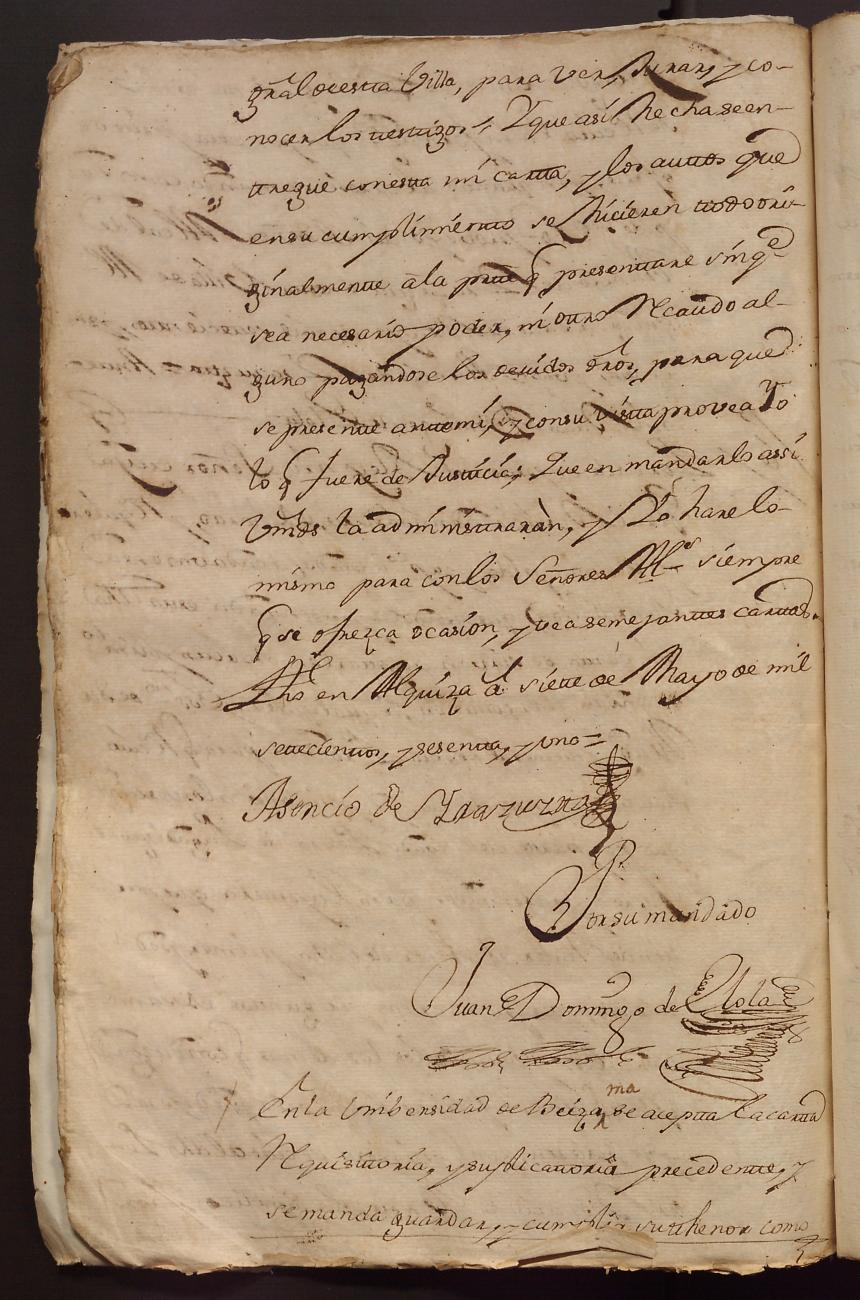 gral de esta Villa, para ver, Jurar, y co-
nocer los testigos, Y que así hecha se en-
tregue con esta mi carta, y los autos que
en su cumplimiento se hicieren todo ori-
ginalmente a la prte q presentare sin qe
sea necesario poder, ni otro Recaudo al-
guno pagandose los devidos dros, para que
se presente ante mi, y con su vista provea Yo
lo q fuere de Justicia; Que en mandarlo assi
Vmds la administraran, y Yo hare lo
mismo para con los Señores Alles siempre
q se ofrezca ocasion, y vea semejantes cartas.
Fho en Alquiza a siete de Mayo de mil
setecientos, y sesenta, y uno=
Asencio de Yrazuzta
Pr
Por su mandado
Juan Domingo de Elola
En la Vnibersidad de Beiza ma se acepta la carta
Requisitoria, y suplicatoria precedente, y
se manda guardar, y cumplir su thenor como